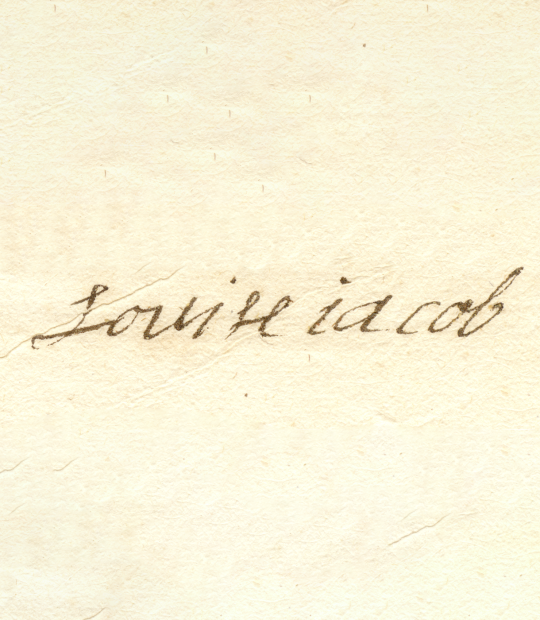 Louise iacob